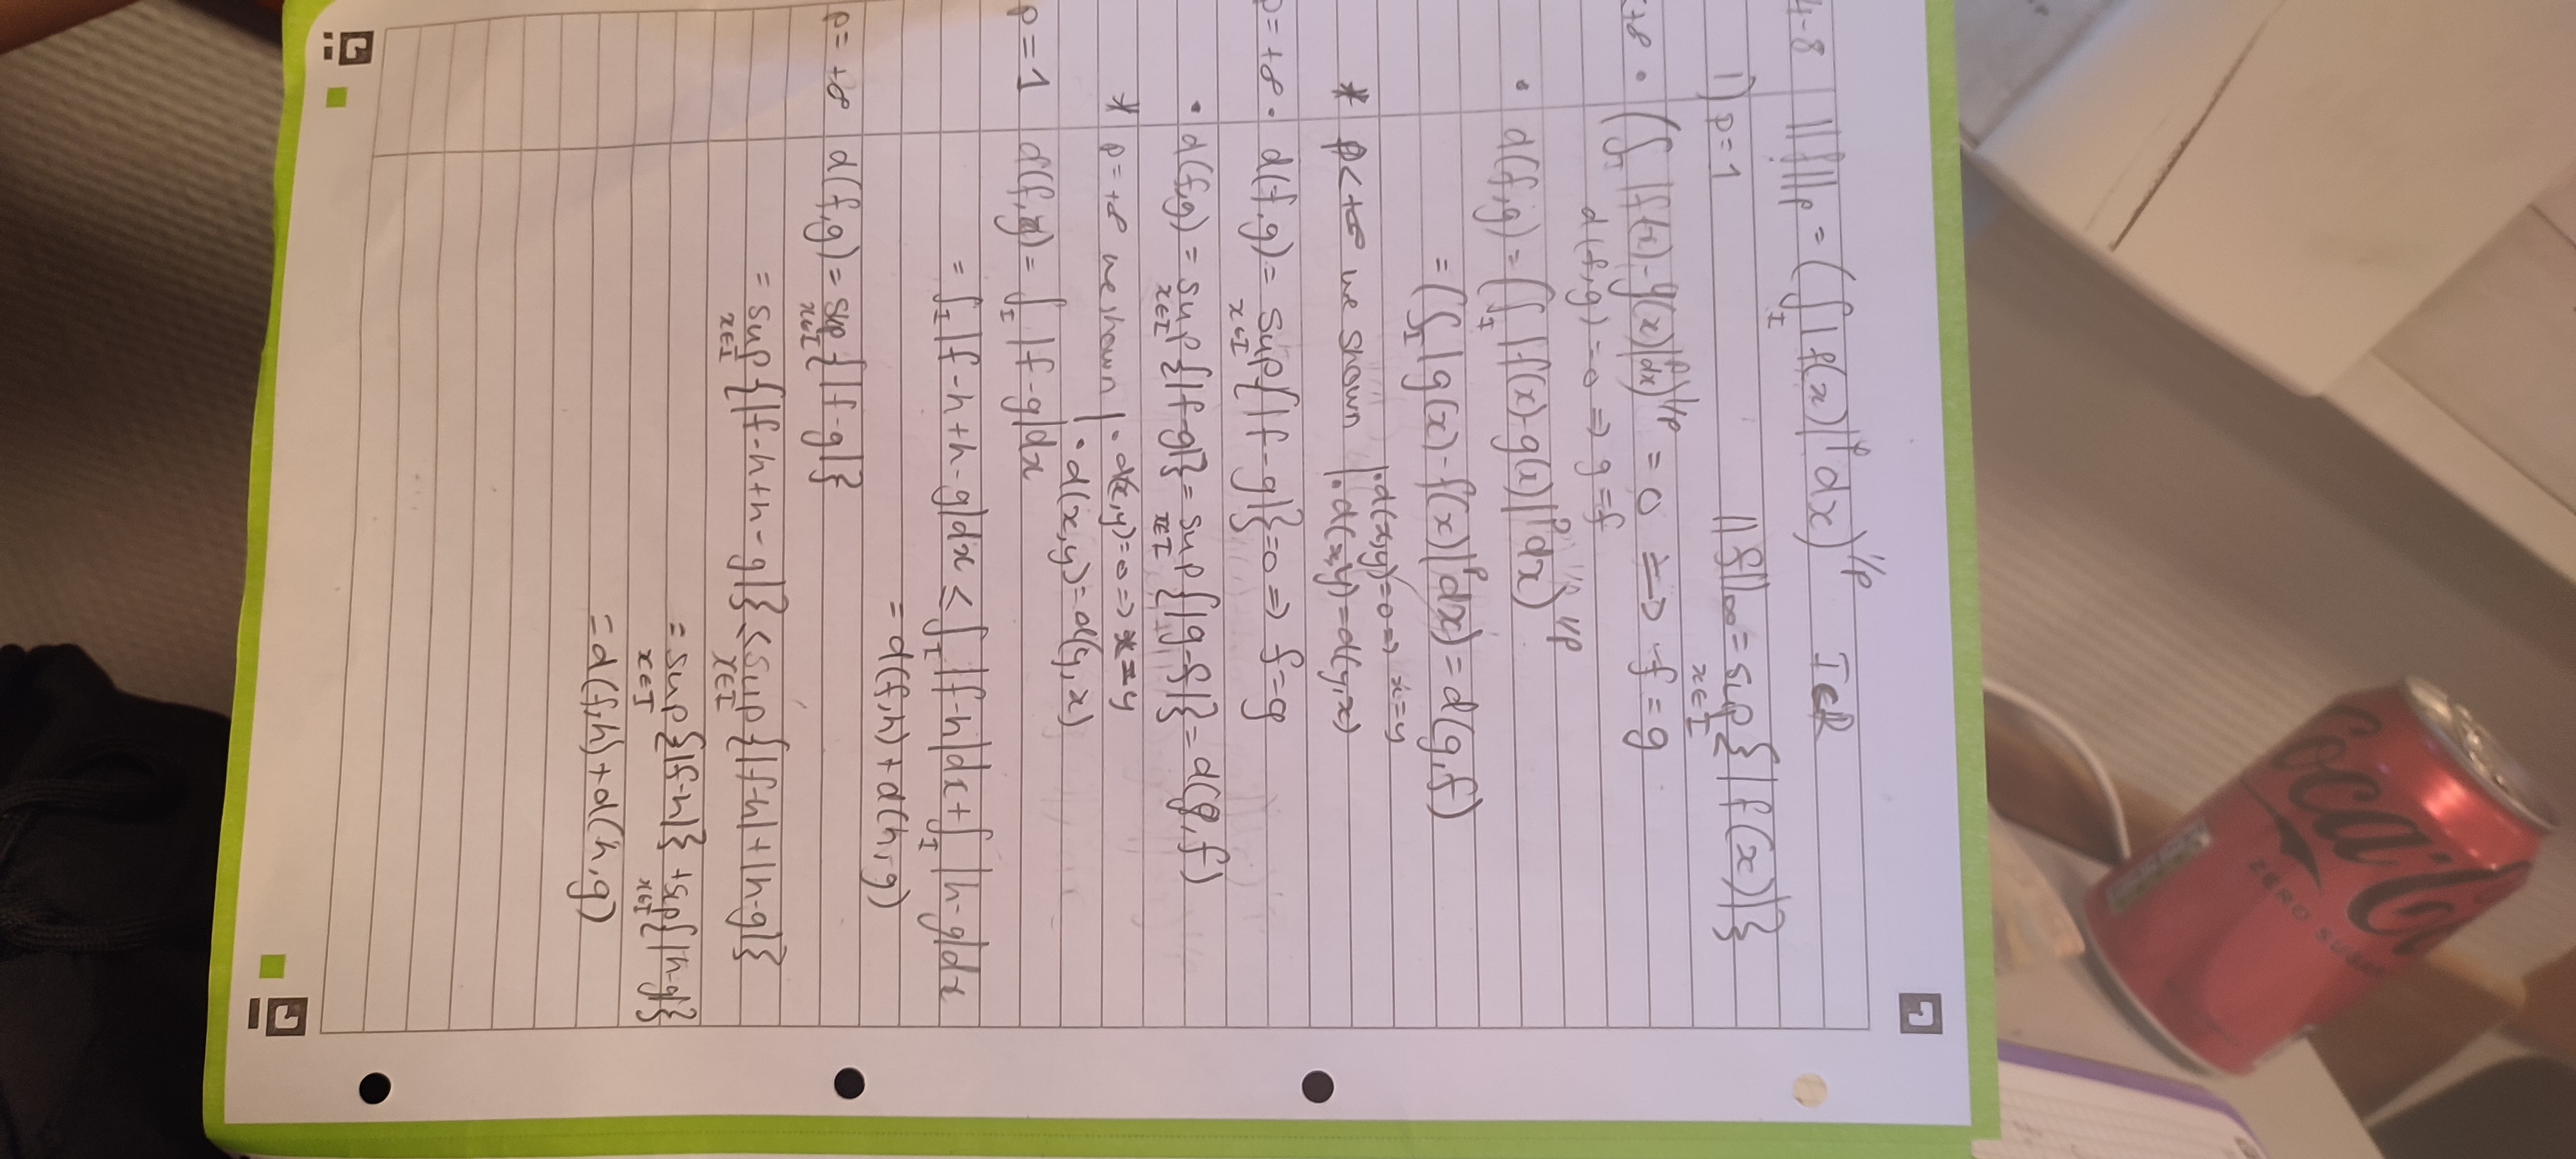 4-8 || f ||p = ( ∫I | f(x)|^p dx)^1/p I∈R
1) p=1 || f ||∞ = sup x∈I { | f(x)|}
+∞ • ( ∫I | f(x) - g(x)|^p dx)^1/p = 0 ⇒ f = g
d(f,g) = 0 ⇒ g = f
• d(f,g) = ( ∫I | f(x) - g(x)|^p dx)^1/p
= ( ∫I | g(x) - f(x)|^p dx) = d(g,f)
• d(x,y)=0 ⇒ x=y
* p<+∞ we shown • d(x,y) = d(y,x)
p=+∞ • d(f,g) = sup x∈I { | f - g |}=0 ⇒ f=g
• d(f,g) = sup x∈I { | f-g|} = sup x∈I { | g-f |} = d(g,f)
* p=+∞ we shown | • d(x,y)=0 ⇒ x=y
• d(x,y) = d(y,x)
p=1 d(f,g) = ∫I | f-g|dx
= ∫I | f-h+h-g|dx ≤ ∫I | f-h|dx + ∫I | h-g|dx
= d(f,h) + d(h,g)
p=+∞ d(f,g) = sup x∈I { | f-g|}
= sup x∈I { | f-h+h-g|} ≤ sup x∈I { | f-h| + | h-g|}
= sup x∈I { | f-h|} + sup x∈I { | h-g|}
= d(f,h) + d(h,g)
Coca-Co
ZERO SUGAR